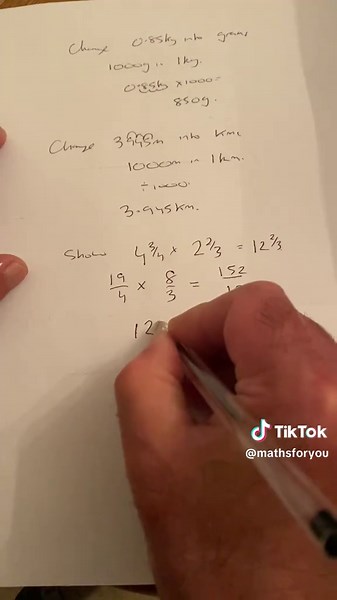 Change 0.85kg into grams
1000g in 1kg.
0.85kg × 1000
850g.
Change 3945m into kms
1000m in 1km.
÷1000.
3.945km.
Show 4 3/4 × 2 2/3 = 12 2/3
19/4 × 8/3 = 152/
12
TikTok
@mathsforyou